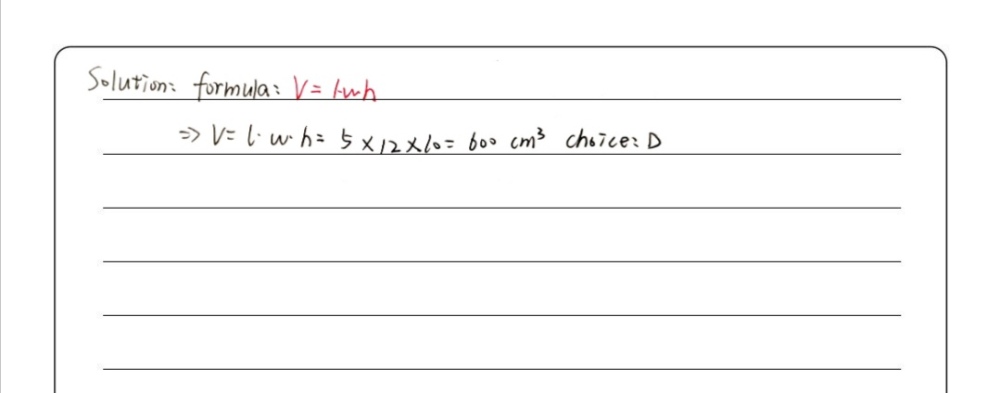 Solution: formula: V = l·w·h
=> V = l · w · h = 5 × 12 × 10 = 600 cm³ choice: D